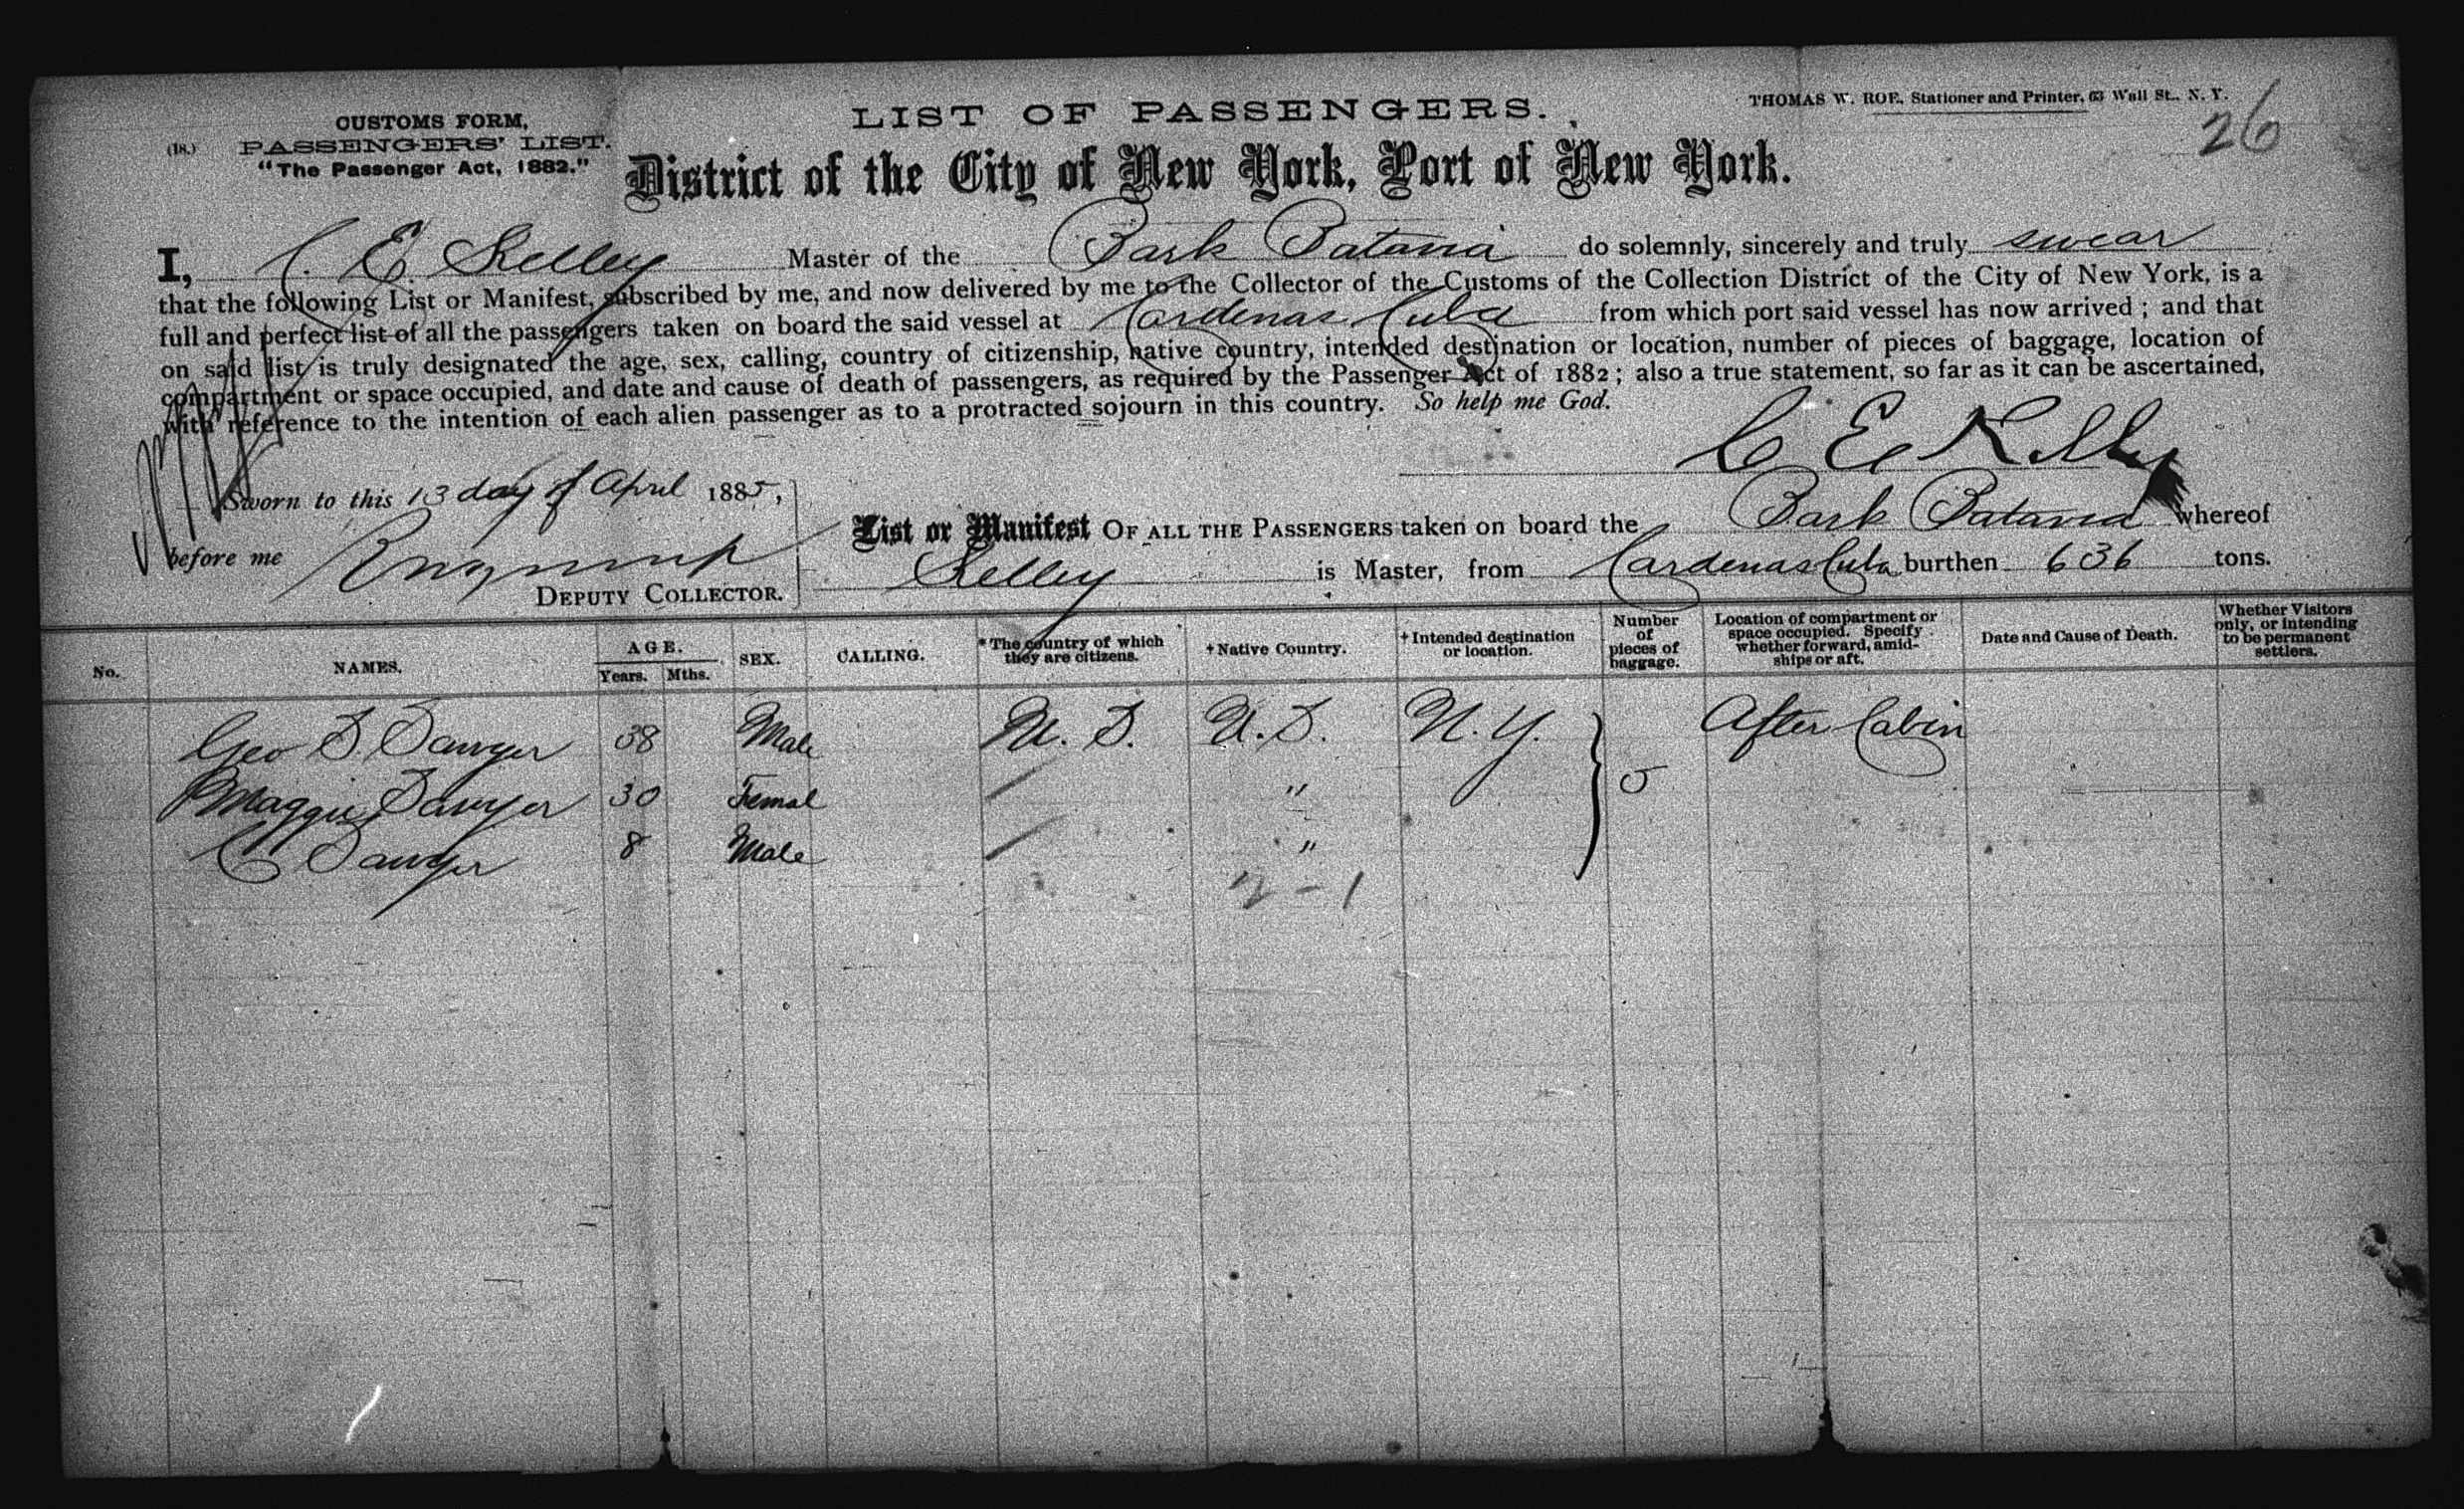 CUSTOMS FORM,
(18.) PASSENGERS' LIST.
"The Passenger Act, 1882."
LIST OF PASSENGERS.
THOMAS W. ROE, Stationer and Printer, 63 Wall St., N. Y.
26
District of the City of New York, Port of New York.
I, C. E. Kelley Master of the Bark Batavia do solemnly, sincerely and truly swear
that the following List or Manifest, subscribed by me, and now delivered by me to the Collector of the Customs of the Collection District of the City of New York, is a
full and perfect list of all the passengers taken on board the said vessel at Cardenas Cuba from which port said vessel has now arrived; and that
on said list is truly designated the age, sex, calling, country of citizenship, native country, intended destination or location, number of pieces of baggage, location of
compartment or space occupied, and date and cause of death of passengers, as required by the Passenger Act of 1882; also a true statement, so far as it can be ascertained,
with reference to the intention of each alien passenger as to a protracted sojourn in this country. So help me God.
C E Kelley
Sworn to this 13 day of April 1885,
before me
DEPUTY COLLECTOR.
List or Manifest OF ALL THE PASSENGERS taken on board the Bark Batavia whereof
Kelley is Master, from Cardenas Cuba burthen 636 tons.
No. NAMES. AGE. Years. Mths. SEX. CALLING. *The country of which they are citizens. +Native Country. +Intended destination or location. Number of pieces of baggage. Location of compartment or space occupied. Specify whether forward, amidships or aft. Date and Cause of Death. Whether Visitors only, or intending to be permanent settlers.
Geo S Sawyer 38 Male U. S. U. S. N. Y. After Cabin
Maggie Sawyer 30 Femal " 5
C Sawyer 8 Male "
2 - 1